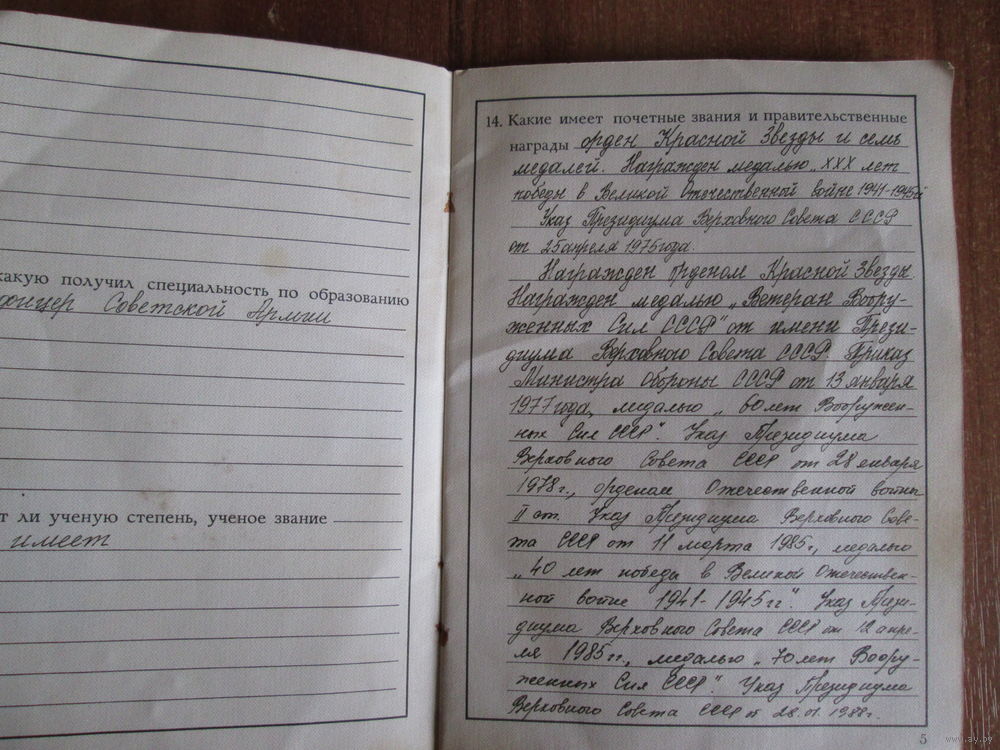 какую получил специальность по образованию
офицер Советской Армии
т ли ученую степень, ученое звание
имеет
14. Какие имеет почетные звания и правительственные
награды орден Красной Звезды и семь
медалей. Награжден медалью „XXX лет
победы в Великой Отечественной войне 1941-1945гг
Указ Президиума Верховного Совета СССР
от 25 апреля 1975 года.
Награжден орденом Красной Звезды
Награжден медалью „Ветеран Воору-
женных Сил СССР" от имени Прези-
диума Верховного Совета СССР. Приказ
Министра Обороны СССР от 13 января
1977 года, медалью „60 лет Вооружен-
ных Сил СССР". Указ Президиума
Верховного Совета СССР от 28 января
1978г., орденом Отечественной войны
II ст. Указ Президиума Верховного Сове-
та СССР от 11 марта 1985г., медалью
„40 лет победы в Великой Отечествен-
ной войне 1941-1945гг". Указ Прези-
диума Верховного Совета СССР от 12 апре-
ля 1985г., медалью „70 лет Воору-
женных Сил СССР". Указ Президиума
Верховного Совета СССР от 28.01.1988г.
5
www.ay.by